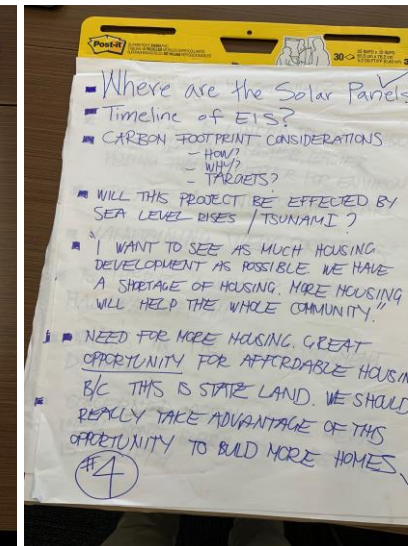 Post-it
30
- Where are the Solar Panels
- Timeline of EIS?
- CARBON FOOTPRINT CONSIDERATIONS
- HOW?
- WHY?
- TARGETS?
- WILL THIS PROJECT BE EFFECTED BY
SEA LEVEL RISES / TSUNAMI?
- "I WANT TO SEE AS MUCH HOUSING
DEVELOPMENT AS POSSIBLE. WE HAVE
A SHORTAGE OF HOUSING. MORE HOUSING
WILL HELP THE WHOLE COMMUNITY."
- NEED FOR MORE HOUSING. GREAT
OPPORTUNITY FOR AFFORDABLE HOUSIN
B/C THIS IS STATE LAND. WE SHOULD
REALLY TAKE ADVANTAGE OF THIS
OPPORTUNITY TO BUILD MORE HOMES
#4